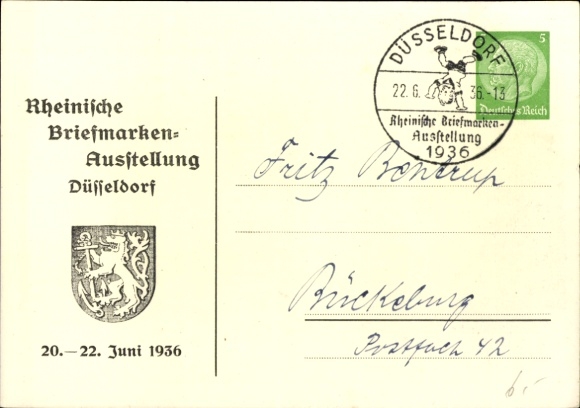 Rheinische
Briefmarken=
Ausstellung
Düsseldorf
20.—22. Juni 1936
DÜSSELDORF
22.6. 36.-13
Rheinische Briefmarken-
Ausstellung
1936
5
Deutsches Reich
Fritz Bentrup
Bückeburg
Postfach 42